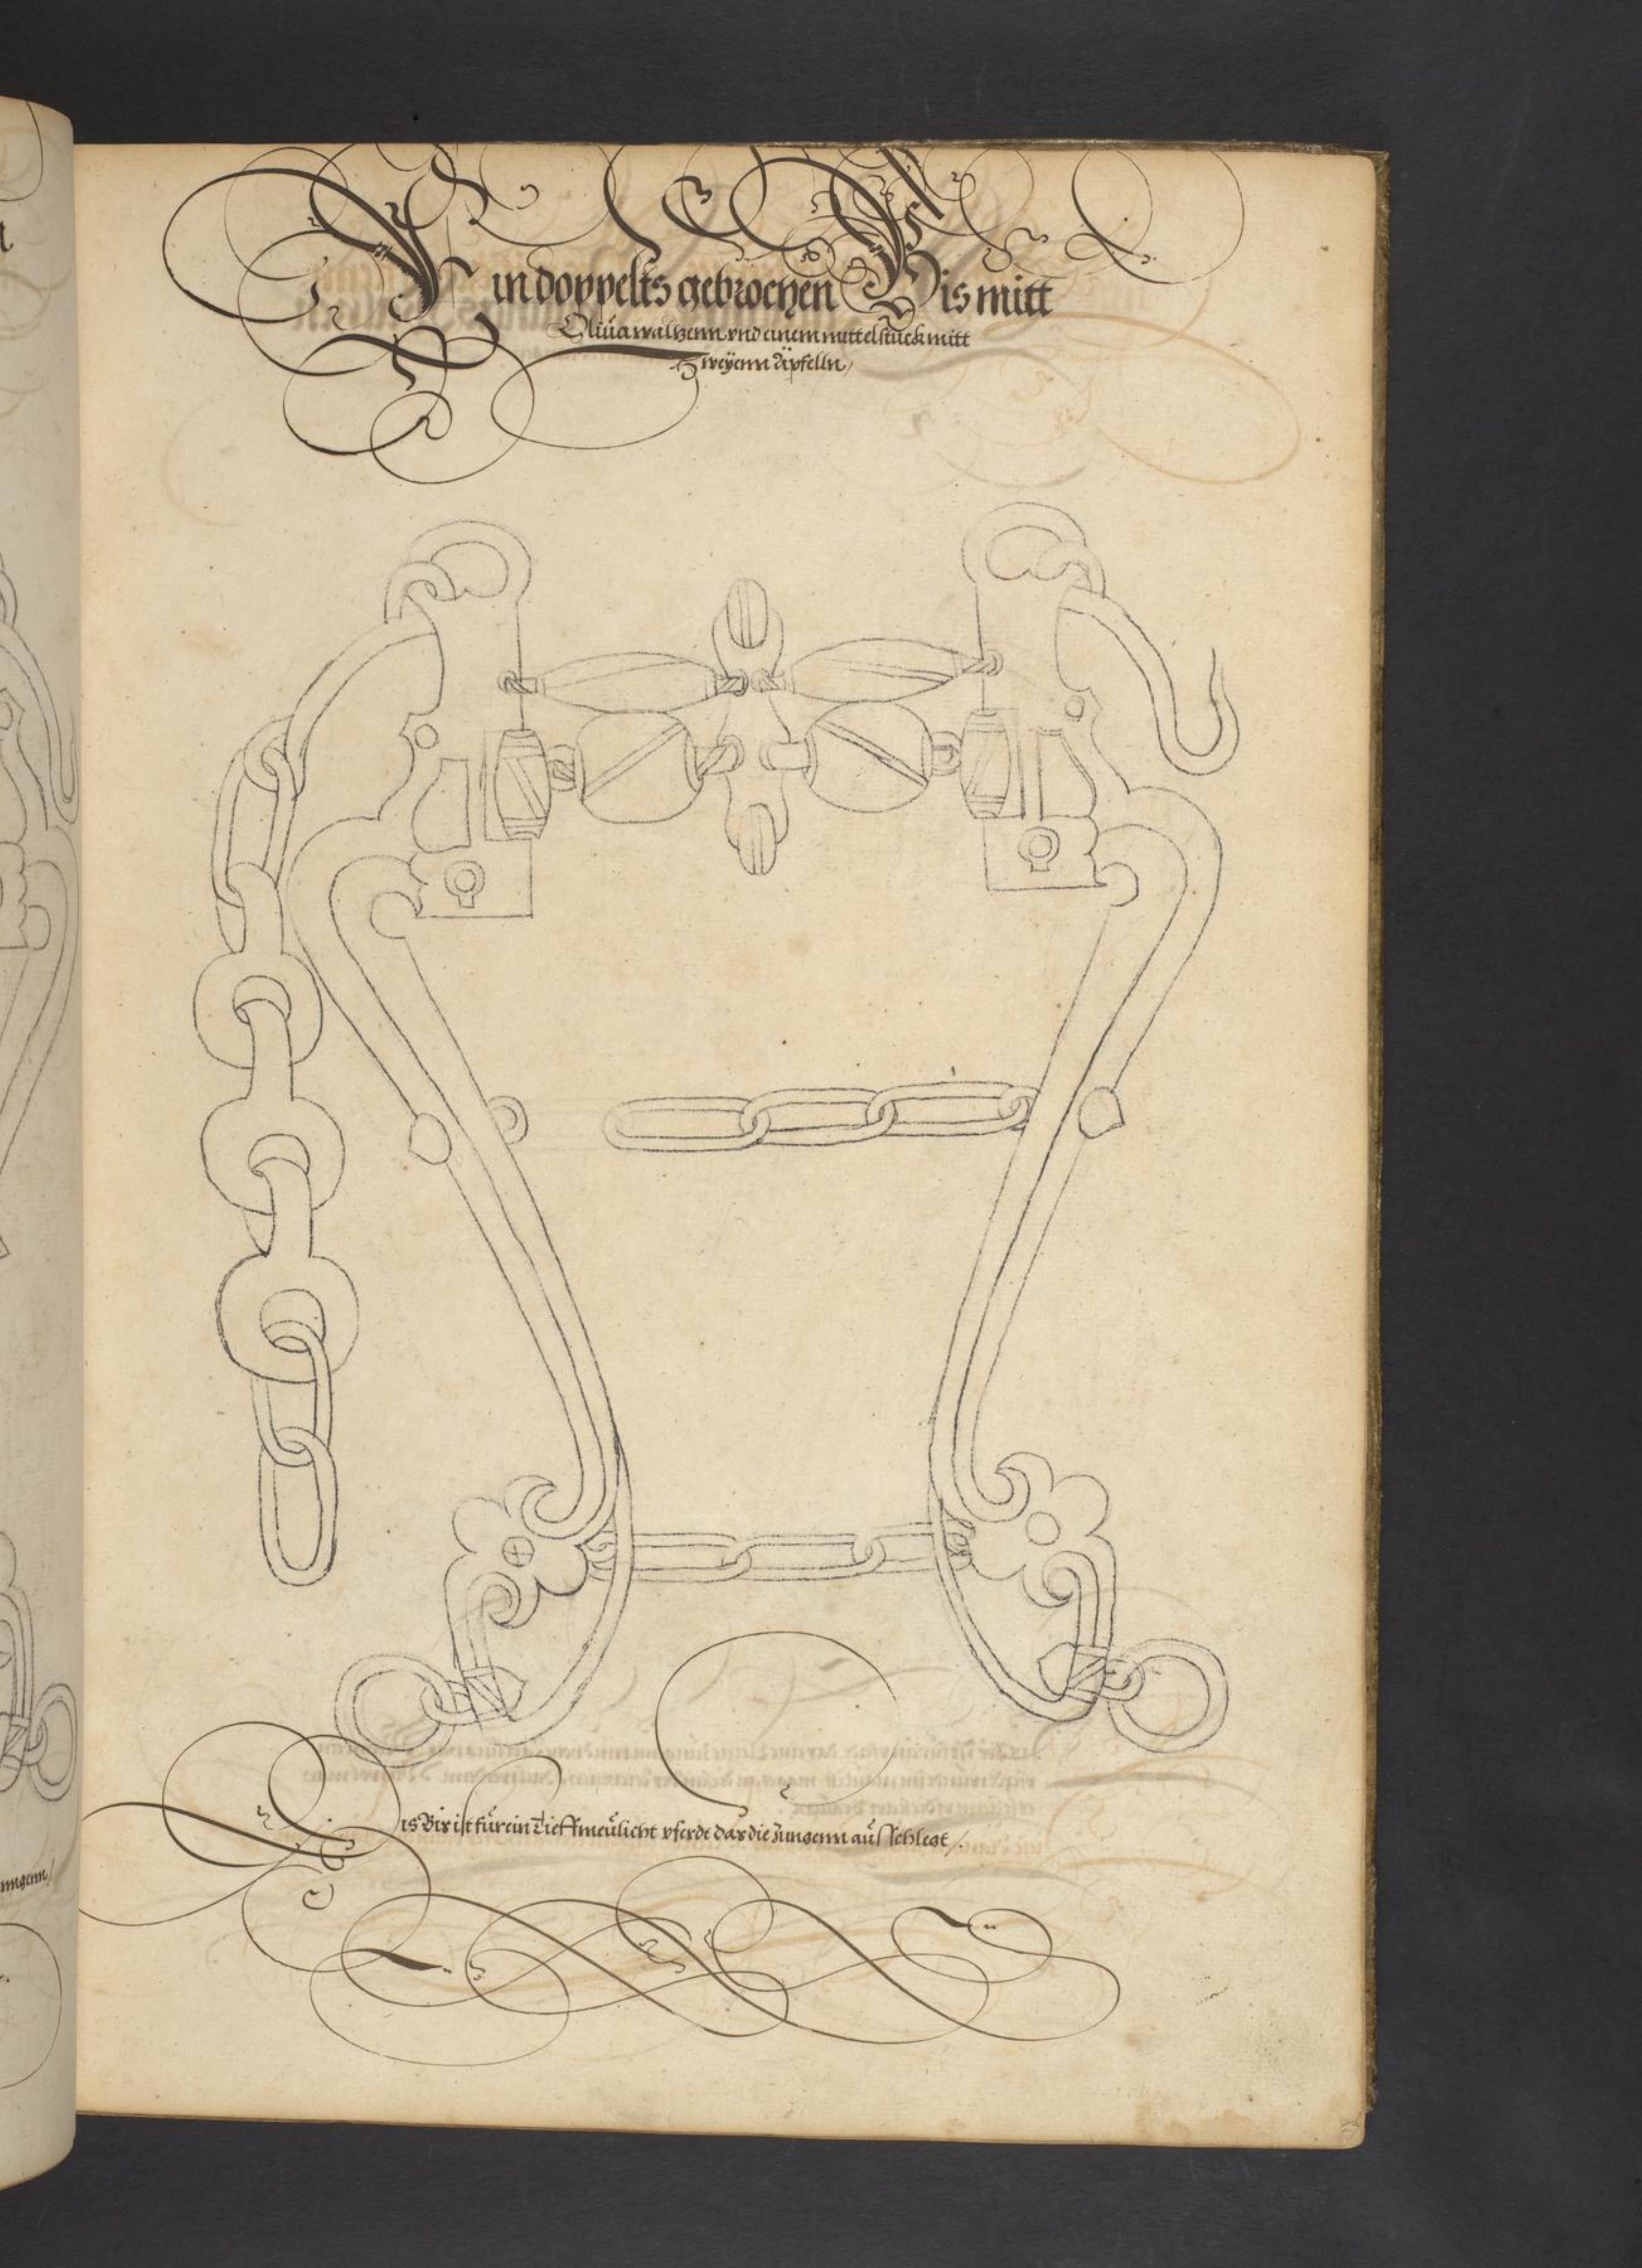 Ein doppelts gebrochen Bis mitt
Oliua waltzenn vnd einem mittelstuck mitt
Zweÿenn äpfelln /
Dis Bis ist für ein Tieff meülicht pferdt das die Zungenn auß schlegt /.
ungenn /